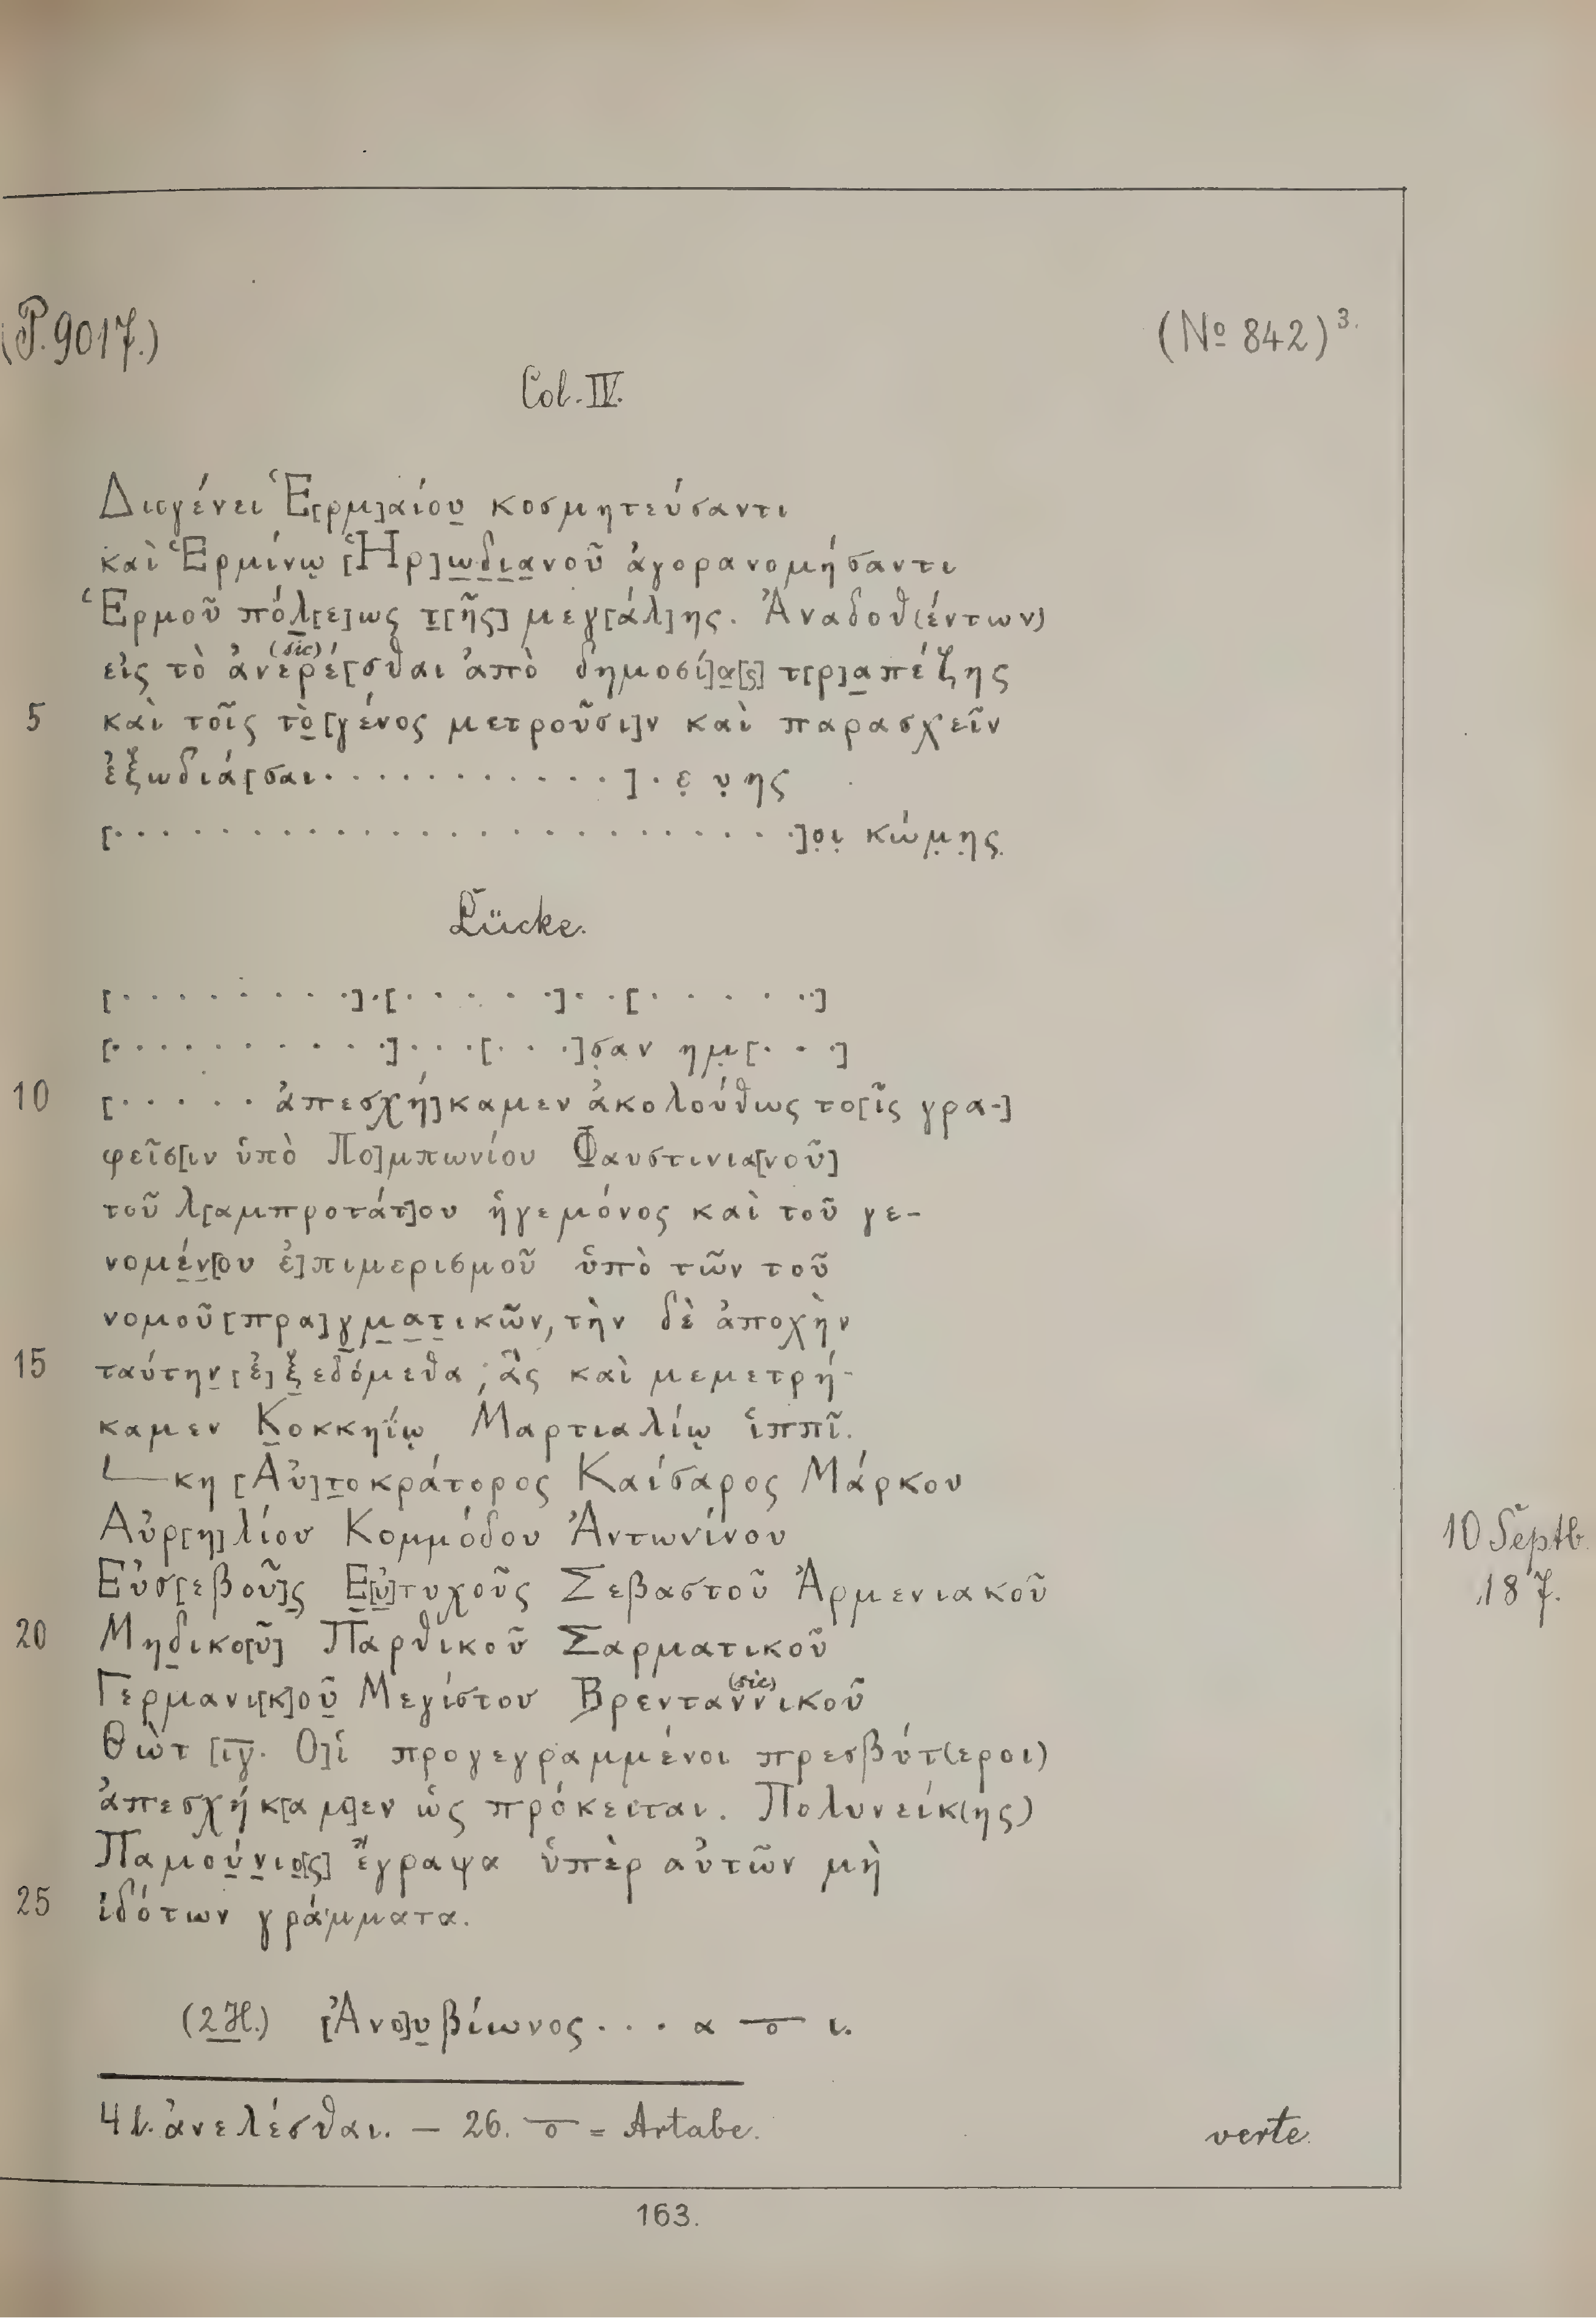 (P. 9017.)
(No 842)3.
Col. IV.
Διογένει Ἑ[ρμ]αίου κοσμητεύσαντι
καὶ Ἑρμίνῳ [Ἡρ]ωδιανοῦ ἀγορανομήσαντι
Ἑρμοῦ πόλ[ε]ως τ[ῆς] μεγ[άλ]ης. Ἀναδοθ(έντων)
εἰς τὸ ἀνερέ[σθαι (sic) ἀπὸ δημοσί]α[ς] τ[ρ]απέζης
5 καὶ τοῖς τὸ [γένος μετροῦσι]ν καὶ παρασχεῖν
ἐξωδιά[σαι . . . . . . . . . . . ] . ε̣ υ̣ης
[. . . . . . . . . . . . . . . . . . . . . . . .]ο̣ι̣ κώμ̣η̣ς̣
Lücke.
[. . . . . . . . .] . [. . . . . .] . . [. . . . . . .]
[. . . . . . . . . . .] . . . [. . . .]σ̣αν ημ̣[. . . .]
10 [. . . . . . ἀπεσχή]καμεν ἀκολούθως το[ῖς γρα-]
φεῖσ[ιν ὑπὸ Πο]μπωνίου Φαυστινια[νοῦ]
τοῦ λ[αμπροτάτ]ου ἡγεμόνος καὶ τοῦ γε-
νομέν[ου ἐ]πιμερισμοῦ ὑπὸ τῶν τοῦ
νομοῦ [πρα]γματικῶν, τὴν δὲ ἀποχὴν
15 ταύτην [ἐ]ξεδόμεθα, ἃς καὶ μεμετρή-
καμεν Κοκκηΐῳ Μαρτιαλίῳ ἱππῖ.
L κη [Αὐ]τοκράτορος Καίσαρος Μάρκου
Αὐρ[η]λίου Κομμόδου Ἀντωνίνου
Εὐσ[εβοῦ]ς Ε[ὐ]τυχοῦς Σεβαστοῦ Ἀρμενιακοῦ
20 Μηδικο[ῦ] Παρθικοῦ Σαρματικοῦ
Γερμανι[κ]οῦ Μεγίστου Βρενταννικοῦ (sic)
Θὼτ [ιγ. Ο]ἱ προγεγραμμένοι πρεσβύτ(εροι)
ἀπεσχήκ[α μ]εν ὡς πρόκειται. Πολυνείκ(ης)
Παμούνιο[ς] ἔγραψα ὑπὲρ αὐτῶν μὴ
25 ἰδότων γράμματα.
10 Septb.
187.
(2 H.) [Ἀνο]υβίωνος . . . α ⨪ ι.
4 l. ἀνελέσθαι. — 26. ⨪ = Artabe.
verte.
163.